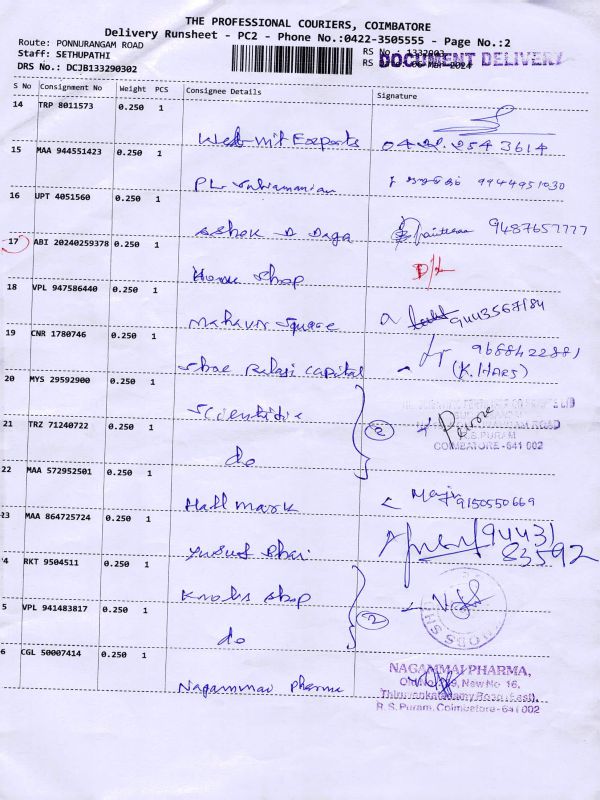 THE PROFESSIONAL COURIERS, COIMBATORE
Delivery Runsheet - PC2 - Phone No.:0422-3505555 - Page No.:2
Route: PONNURANGAM ROAD
Staff: SETHUPATHI
DRS No.: DCJB133290302
RS No.: 1332903
DOCUMENT DELIVERY
S No Consignment No Weight PCS Consignee Details Signature
14 TRP 8011573 0.250 1
Exports 0422.2543614
15 MAA 944551423 0.250 1
PL Subramanian 9944951030
16 UPT 4051560 0.250 1
Ashok D Daga 9487657777
17 ABI 20240259378 0.250 1
Home Shop D/L
18 VPL 947586440 0.250 1
Mahavir Square 9443567184
19 CNR 1780746 0.250 1
Shree Balaji Capital 9688422881
(K. HARS)
20 MYS 29592900 0.250 1
Scientific
21 TRZ 71240722 0.250 1
do 2
R.S.PURAM
COIMBATORE-641 002
22 MAA 572952501 0.250 1
Hall mark 9150550669
23 MAA 864725724 0.250 1
Yusuf Bhai 94431
83592
4 RKT 9504511 0.250 1
Knobs shop
5 VPL 941483817 0.250 1
do 2
6 CGL 50007414 0.250 1
Nagammai Pharma
NAGAMMAI PHARMA,
New No 16,
Thiruvenkatasamy Road (East),
R.S. Puram, Coimbatore - 641 002